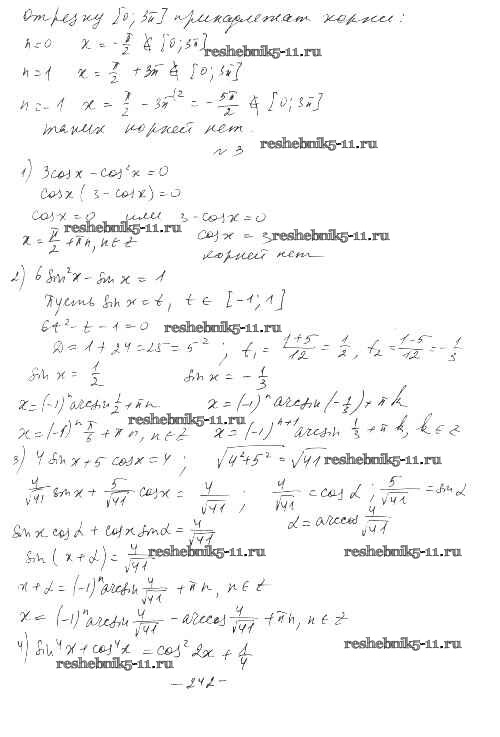 Отрезку [0; 3π] принадлежат корни:
n=0 x = -π/2 ∉ [0; 3π]
reshebnik5-11.ru
n=1 x = π/2 + 3π ∉ [0; 3π]
n=-1 x = π/2 - 3π = -5π/2 ∉ [0; 3π]
таких корней нет.
reshebnik5-11.ru
№3
1) 3cosx - cos²x = 0
cosx(3 - cosx) = 0
cosx = 0 или 3 - cosx = 0
reshebnik5-11.ru
x = π/2 + πn, n∈Z cosx = 3
reshebnik5-11.ru
корней нет
2) 6sin²x - sinx = 1
Пусть sinx = t, t ∈ [-1; 1]
6t² - t - 1 = 0
reshebnik5-11.ru
D = 1 + 24 = 25 = 5²; t₁ = (1+5)/12 = 1/2, t₂ = (1-5)/12 = -1/3
sinx = 1/2 sinx = -1/3
x = (-1)ⁿ arcsin 1/2 + πn x = (-1)ⁿ arcsin(-1/3) + πk
reshebnik5-11.ru
x = (-1)ⁿ π/6 + πn, n∈Z x = (-1)ⁿ⁺¹ arcsin 1/3 + πk, k∈Z
3) 4sinx + 5cosx = 4; √(4²+5²) = √41
reshebnik5-11.ru
4/√41 sinx + 5/√41 cosx = 4/√41; 4/√41 = cosα; 5/√41 = sinα
sinx cosα + cosx sinα = 4/√41 α = arccos 4/√41
sin(x+α) = 4/√41
reshebnik5-11.ru reshebnik5-11.ru
x+α = (-1)ⁿ arcsin 4/√41 + πn, n∈Z
x = (-1)ⁿ arcsin 4/√41 - arccos 4/√41 + πn, n∈Z
4) sin⁴x + cos⁴x = cos²2x + 1/4
reshebnik5-11.ru
reshebnik5-11.ru
-242-